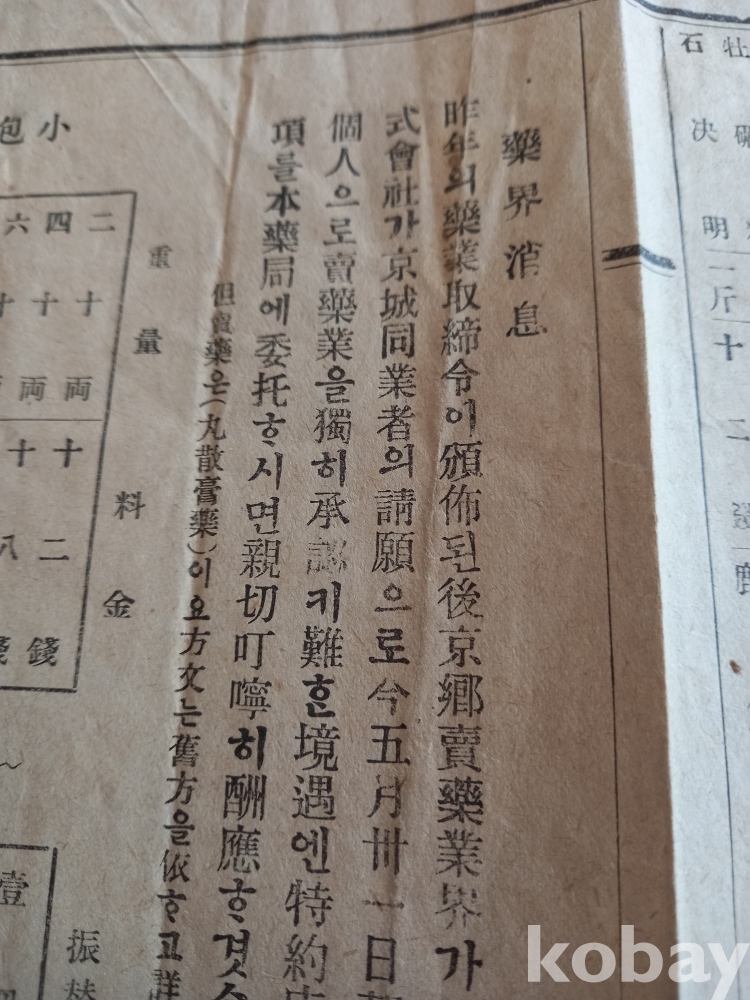 牡
石
決
明
一斤
十
二
藥界消息
昨年의藥業取締令이頒佈된後京鄕賣藥業界가
式會社가京城同業者의請願으로今五月卅一日
個人으로賣藥業을獨히承認키難ᄒᆞᆫ境遇엔特約
項를本藥局에委托ᄒᆞ시면親切叮嚀히酬應ᄒᆞ겟
但賣藥은(丸散膏藥)이요方文는舊方을依ᄒᆞ고詳
重量
料金
小包
二十両
四十両
六十
十二錢
十八
振替
壹
kobay